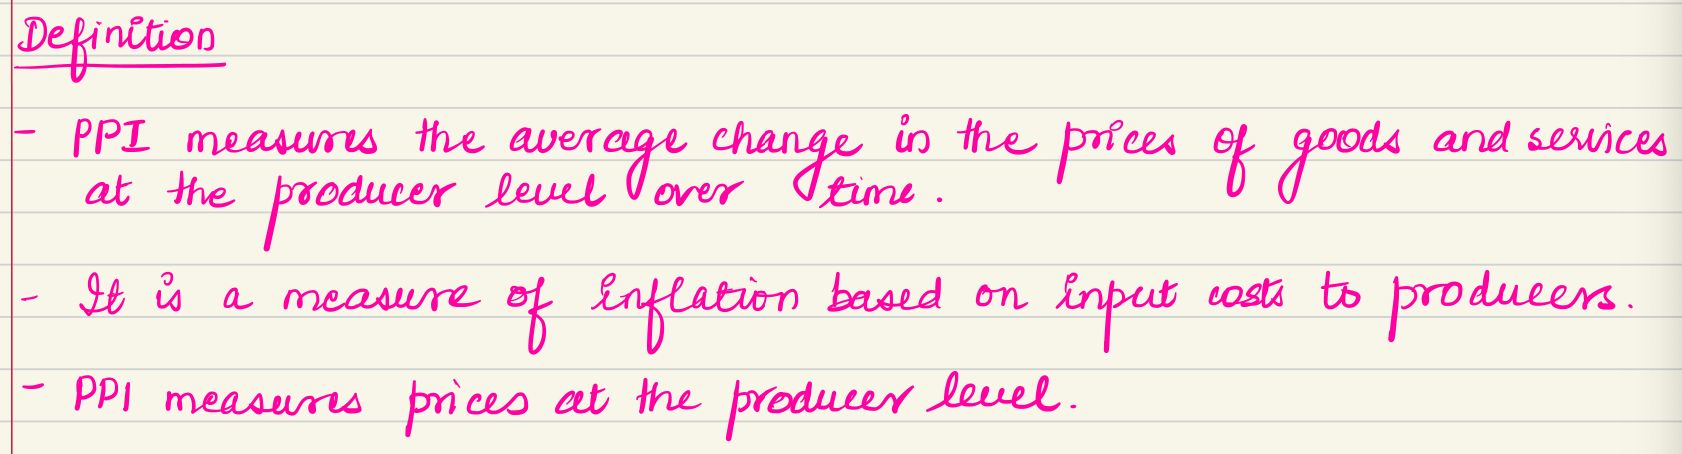 Definition
- PPI measures the average change in the prices of goods and services
at the producer level over time.
- It is a measure of inflation based on input costs to producers.
- PPI measures prices at the producer level.